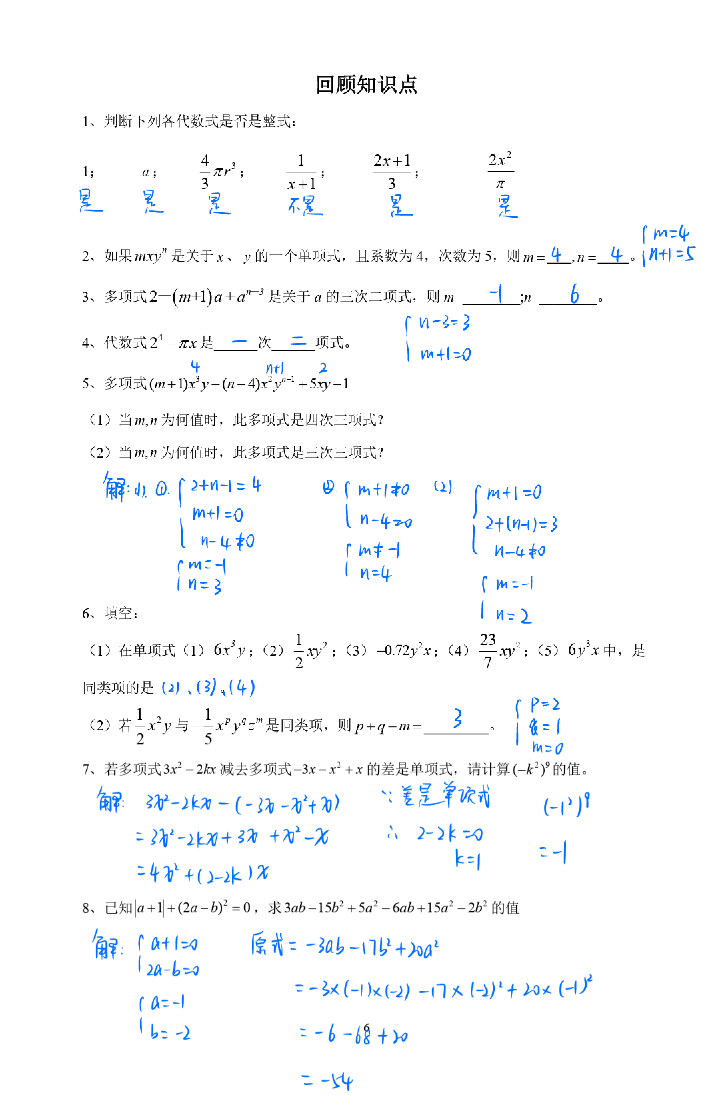 回顾知识点
1、判断下列各代数式是否是整式:
1; a; 4/3 πr³; 1/(x+1); (2x+1)/3; 2x²/π
是 是 是 不是 是 是
2、如果mxyⁿ是关于x、y的一个单项式，且系数为4，次数为5，则m=4,n=4。 {m=4
n+1=5
3、多项式2—(m+1)a+aⁿ⁻³是关于a的三次二项式，则m -1;n 6。
{n-3=3
m+1=0
4、代数式2⁴ πx是一次二项式。
4 n+1 2
5、多项式(m+1)x³y-(n-4)x²yⁿ⁻¹+5xy-1
（1）当m,n为何值时，此多项式是四次三项式?
（2）当m,n为何值时，此多项式是三次三项式?
解:(1) ① {2+n-1=4 ② {m+1≠0 (2) {m+1=0
m+1=0 n-4=0 2+(n-1)=3
n-4≠0 {m≠-1 n-4≠0
{m=-1 n=4 {m=-1
n=3 n=2
6、填空:
（1）在单项式（1）6x³y;（2）1/2 xy²;（3）-0.72y²x;（4）23/7 xy²;（5）6y³x中，是
同类项的是(2)、(3)、(4)
（2）若1/2 x²y与 1/5 xᵖy𐞥zᵐ是同类项，则p+q-m=3。 {P=2
q=1
m=0
7、若多项式3x²-2kx减去多项式-3x-x²+x的差是单项式，请计算(-k²)⁹的值。
解: 3x²-2kx-(-3x-x²+x) ∵差是单项式 (-1²)⁹
=3x²-2kx+3x+x²-x ∴ 2-2k=0 =-1
=4x²+(2-2k)x k=1
8、已知|a+1|+(2a-b)²=0，求3ab-15b²+5a²-6ab+15a²-2b²的值
解: {a+1=0 原式=-3ab-17b²+20a²
2a-b=0
=-3×(-1)×(-2)-17×(-2)²+20×(-1)²
{a=-1
b=-2 =-6-68+20
6
=-54